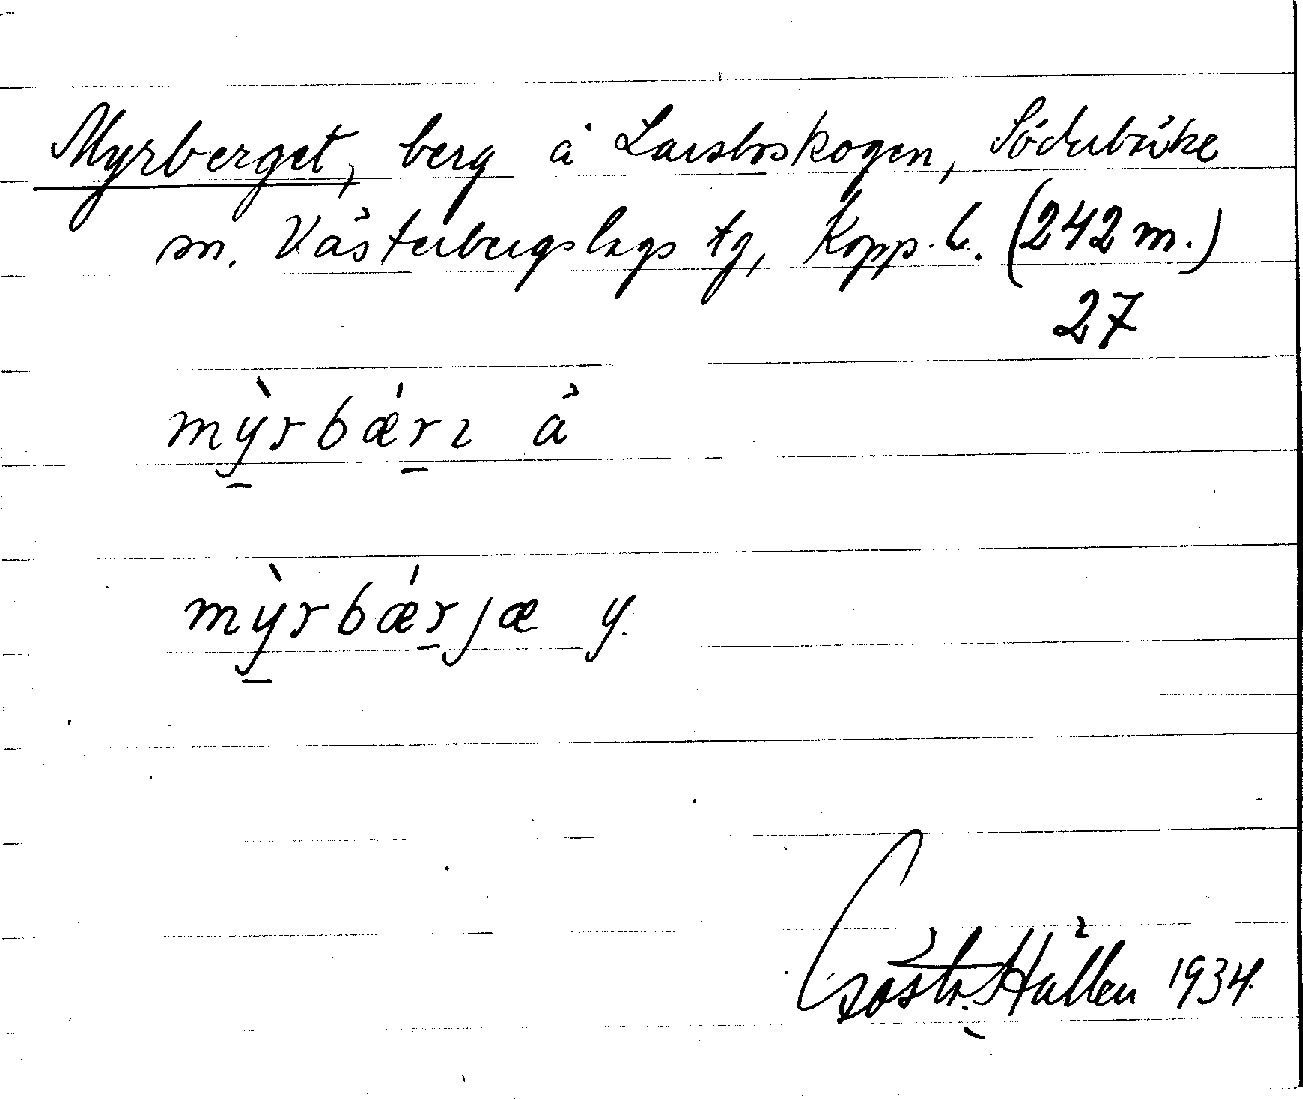 Myrberget, berg å Larsboskogen, Söderbärke
sn. Västerbergslags tg, Kopp. l. (242 m.)
27
mỳrbǽrı å
mỳrbǽrjæ y.
Gösta Hallen 1934.